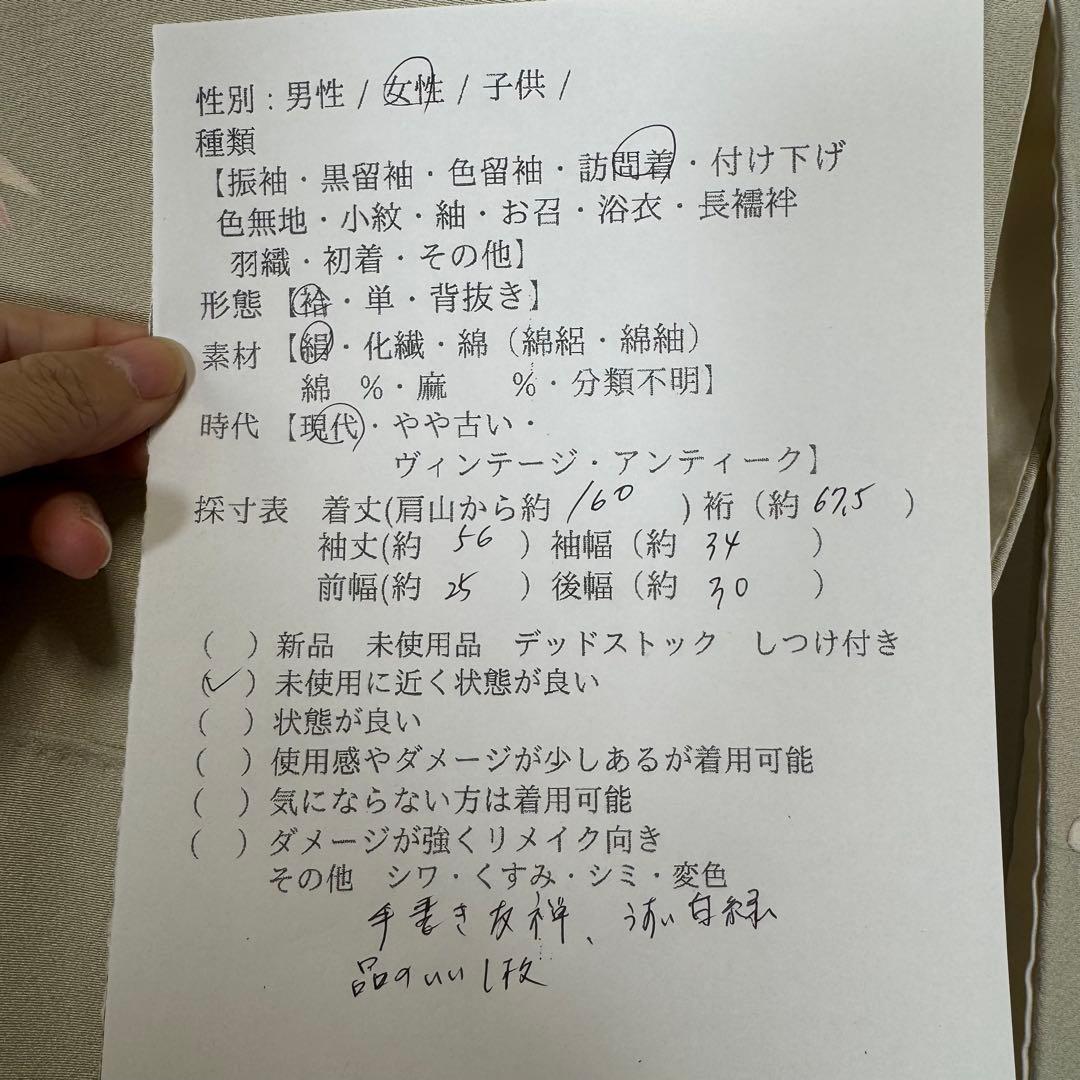 性別：男性 / 女性 / 子供 /
種類
【振袖・黒留袖・色留袖・訪問着・付け下げ
色無地・小紋・紬・お召・浴衣・長襦袢
羽織・初着・その他】
形態【袷・単・背抜き】
素材【絹・化繊・綿（綿絽・綿紬）
綿 %・麻 %・分類不明】
時代【現代・やや古い・
ヴィンテージ・アンティーク】
採寸表 着丈(肩山から約 160 ) 裄（約 67.5 ）
袖丈(約 56 ）袖幅（約 34 ）
前幅(約 25 ）後幅（約 30 ）
( ）新品 未使用品 デッドストック しつけ付き
(✓）未使用に近く状態が良い
( ）状態が良い
( ）使用感やダメージが少しあるが着用可能
( ）気にならない方は着用可能
( ）ダメージが強くリメイク向き
その他 シワ・くすみ・シミ・変色
手書き友禅、うすい白緑
品のいい1枚